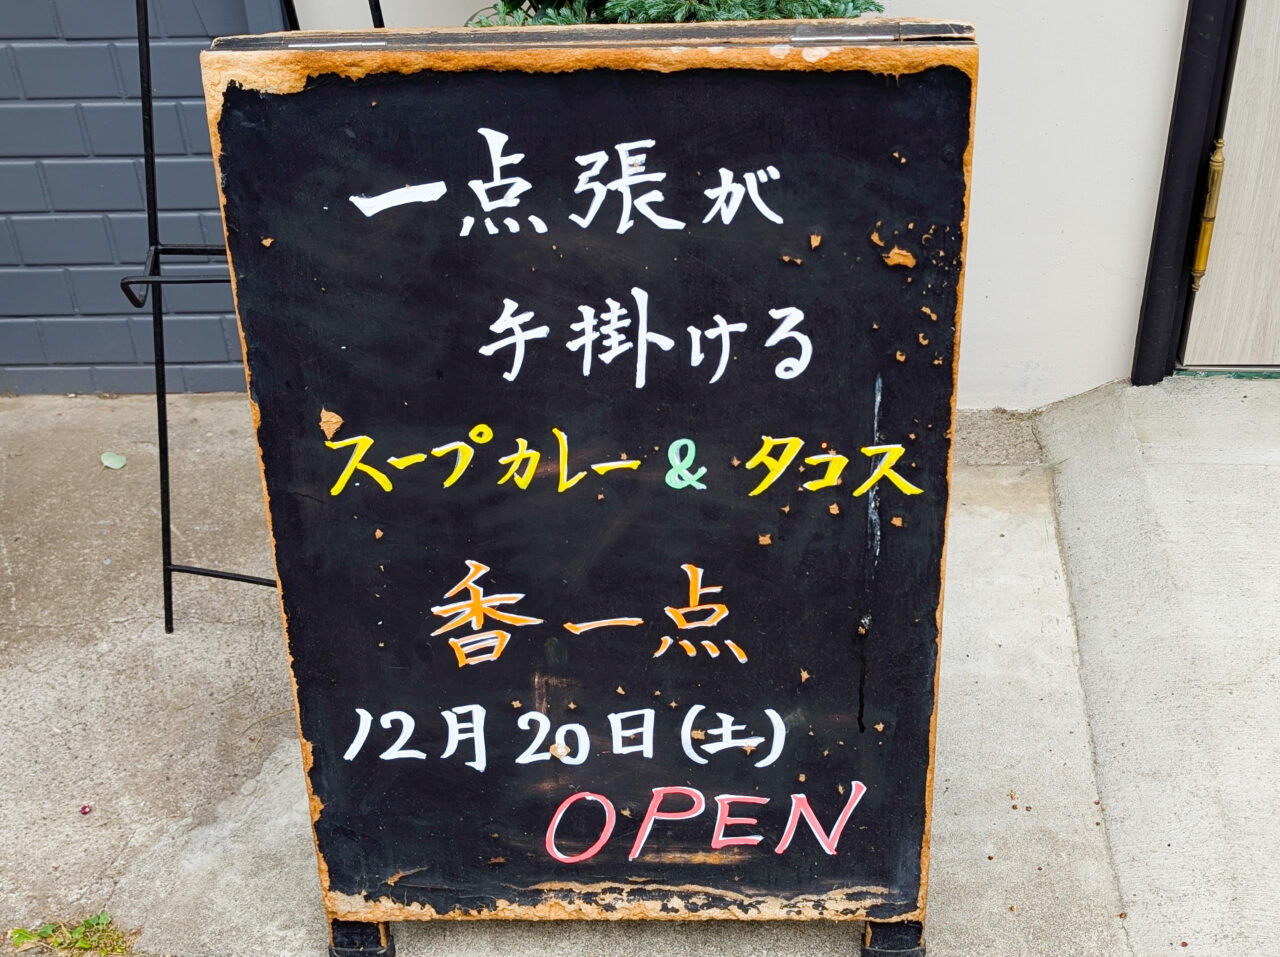 一点張が
手掛ける
スープカレー & タコス
香一点
12月20日(土)
OPEN